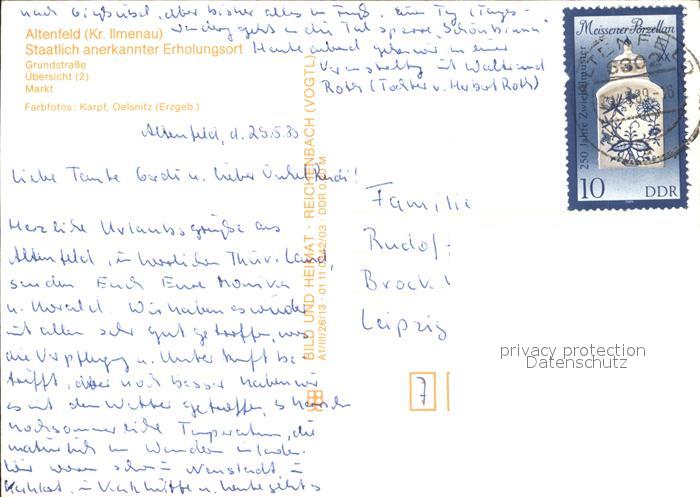 nach Gießübel, aber bisher alles zu Fuß. Eine Tages-
wanderung geht in die Talsperre Schönbrunn
Heute abend gehen wir in eine
Veranstaltg mit Waltraud
Roth (Tochter v. Herbert Roth)
Altenfeld (Kr. Ilmenau)
Staatlich anerkannter Erholungsort
Grundstraße
Übersicht (2)
Markt
Farbfotos: Karpf, Oelsnitz (Erzgeb.)
Altenfeld, d. 25.5.
Liebe Tante Gerdi u. lieber Onkel Rudi!
Herzliche Urlaubsgrüße aus
Altenfeld, im herrlichen Thür. Land,
senden Euch Eure Monika
u. Harald Wir haben es wieder
mit allem sehr gut getroffen, was
die Verpflegung u. Unterkunft be-
trifft, aber noch besser haben wir
es mit dem Wetter getroffen, es herrschen
hochsommerliche Temperaturen, die
natürlich zum Wandern einladen.
Wir waren schon in Neustadt, in
Kahlert, in u. heute gehts
BILD UND HEIMAT · REICHENBACH (VOGTL)
A1/III/26/13 · 01 11 02 42/03 · DDR 0,20 M
Familie
Rudolf
Brock
Leipzig
7
Meissener Porzellan
250 Jahre Zwiebelmuster
10 DDR
privacy protection
Datenschutz